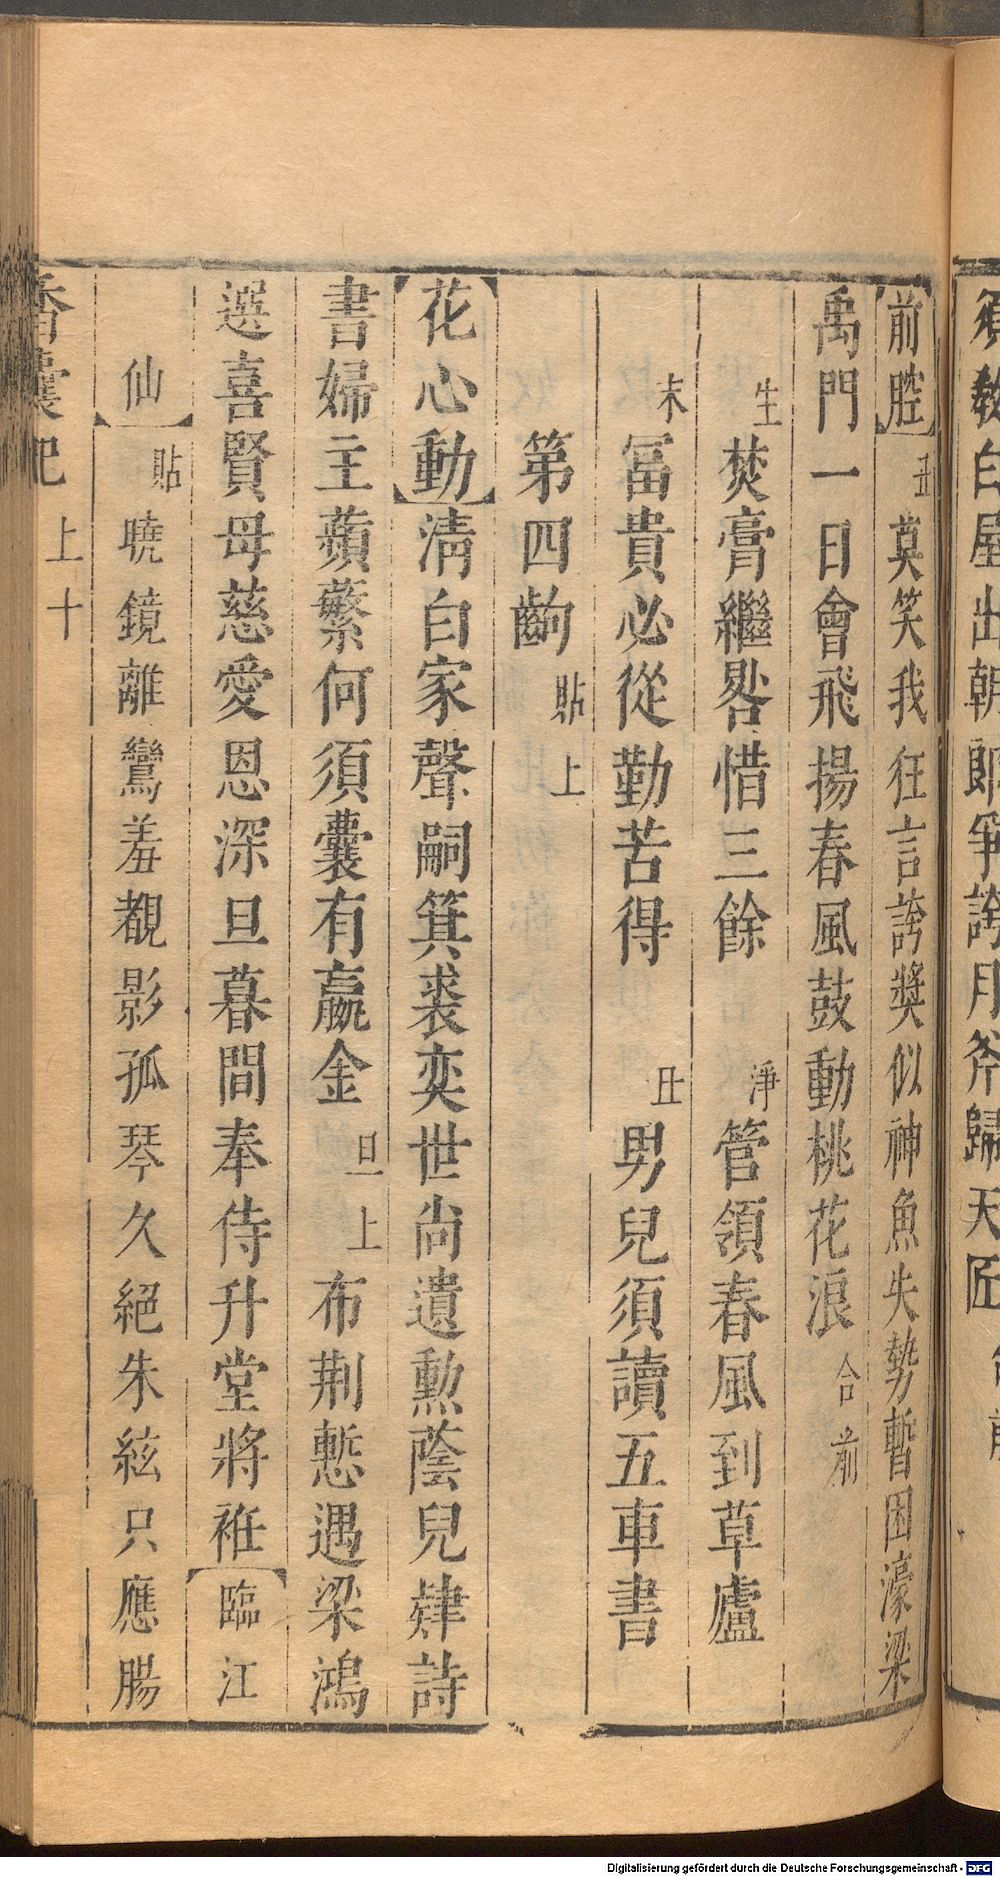 須教白屋出朝郎爭誇月斧歸天匠
【前腔】丑莫笑我狂言誇獎似神魚失勢暫困濠梁
禹門一日會飛揚春風鼓動桃花浪合前
生焚膏繼晷惜三餘 淨管領春風到草廬
末冨貴必從勤苦得 丑男兒須讀五車書
第四齣貼上
【花心動】淸白家聲嗣箕裘奕世尚遺勲蔭兒肄詩
書婦主蘋蘩何須囊有嬴金旦上布荆慙遇梁鴻
選喜賢母慈愛恩深旦暮間奉侍升堂將袵【臨江
仙】貼曉鏡離鸞羞覩影孤琴久絕朱絃只應腸
香囊記 上 十
Digitalisierung gefördert durch die Deutsche Forschungsgemeinschaft - DFG